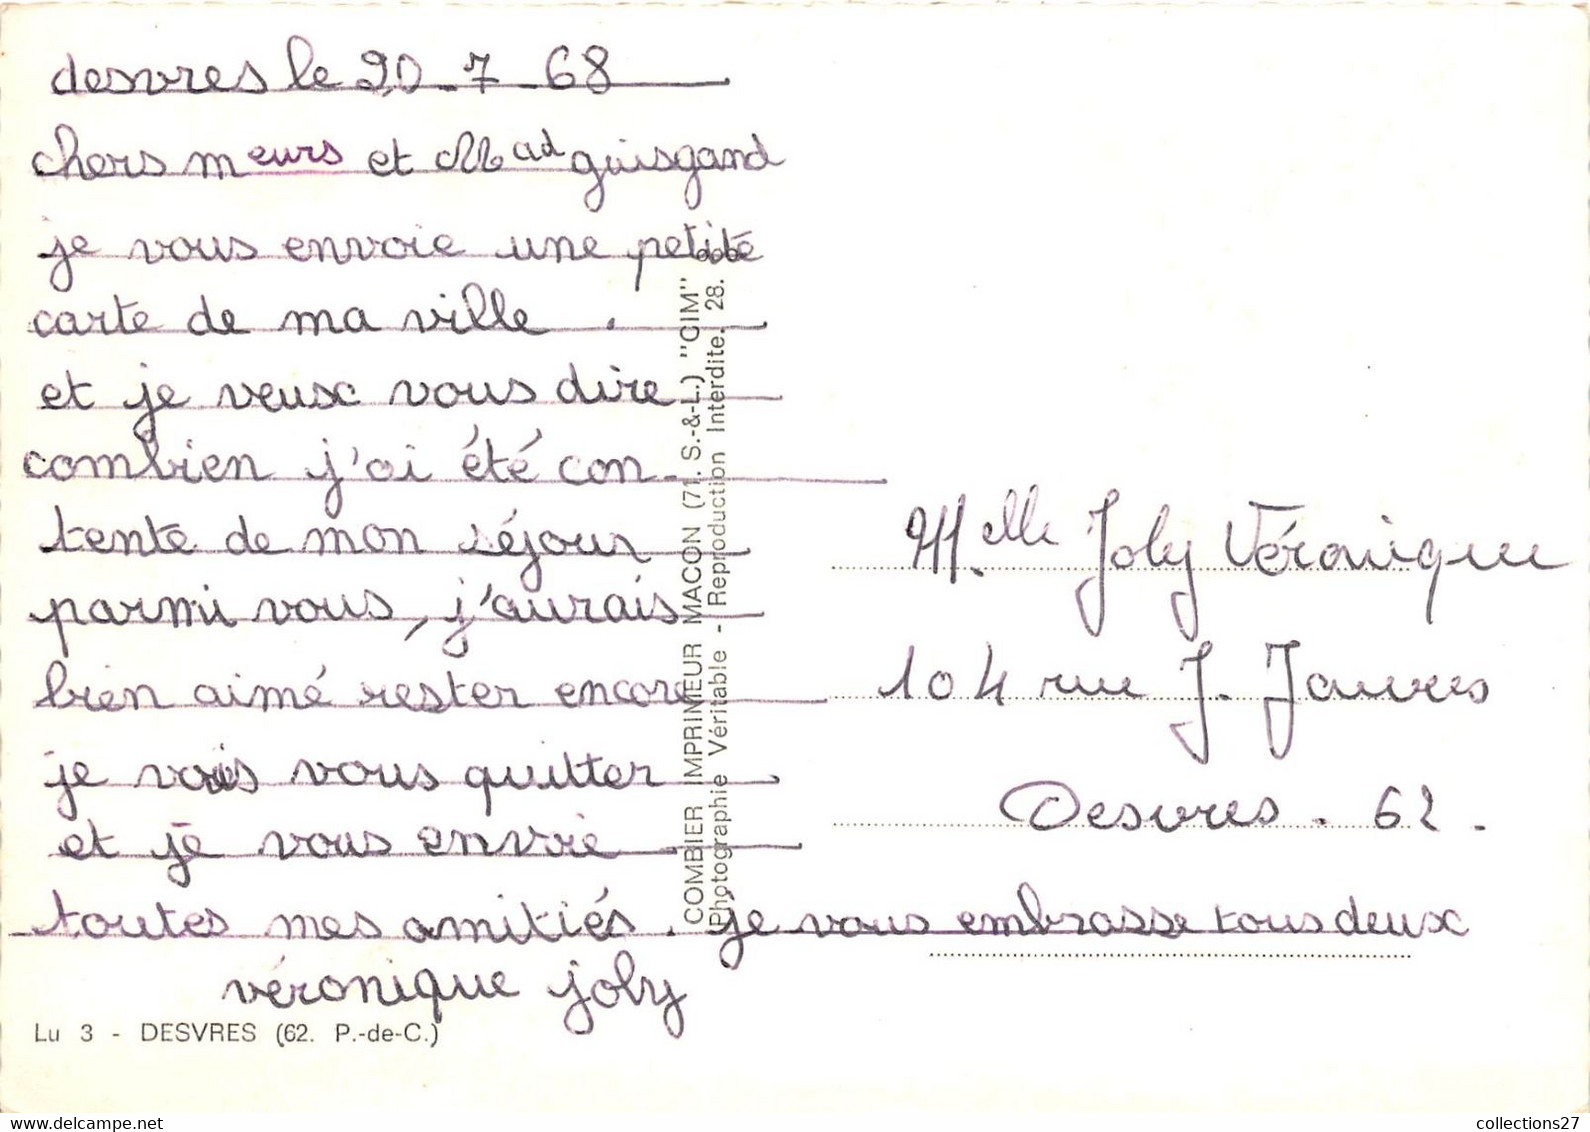 desvres le 20-7-68
chers meurs et Mad guisgand
je vous envoie une petite
carte de ma ville.
et je veux vous dire
combien j'ai été con-
tente de mon séjour
parmi vous, j'aurais
bien aimé rester encore
je vais vous quitter
et je vous envoie
toutes mes amitiés. je vous embrasse tous deux
véronique joly
Lu 3 - DESVRES (62. P.-de-C.)
COMBIER IMPRIMEUR MACON (71. S.-&-L.) "CIM"
Photographie Véritable - Reproduction Interdite. 28.
Melle Joly Véronique
104 rue J. Jaures
Desvres. 62.
collections27